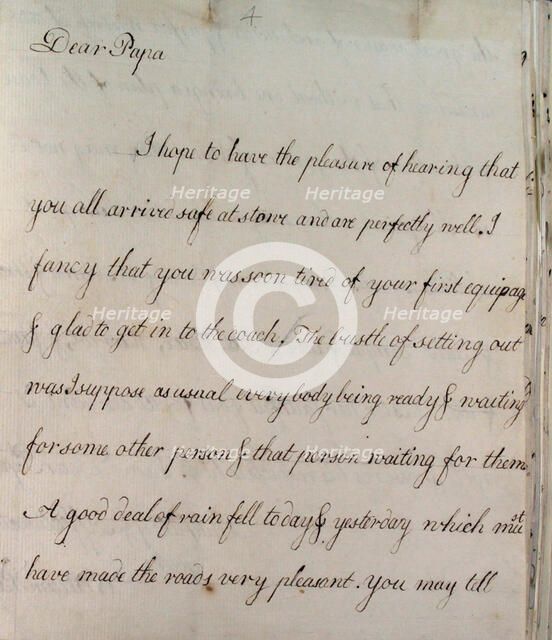 4
Dear Papa
I hope to have the pleasure of hearing that
you all arrived safe at stowe and are perfectly well. I
fancy that you was soon tired of your first equipage
& glad to get in to the coach. The bustle of setting out
was I suppose as usual every body being ready & waiting
for some other person & that person waiting for them
A good deal of rain fell to day & yesterday which must
have made the roads very pleasant. you may tell
Heritage Heritage
Heritage Heritage
Heritage Heritage